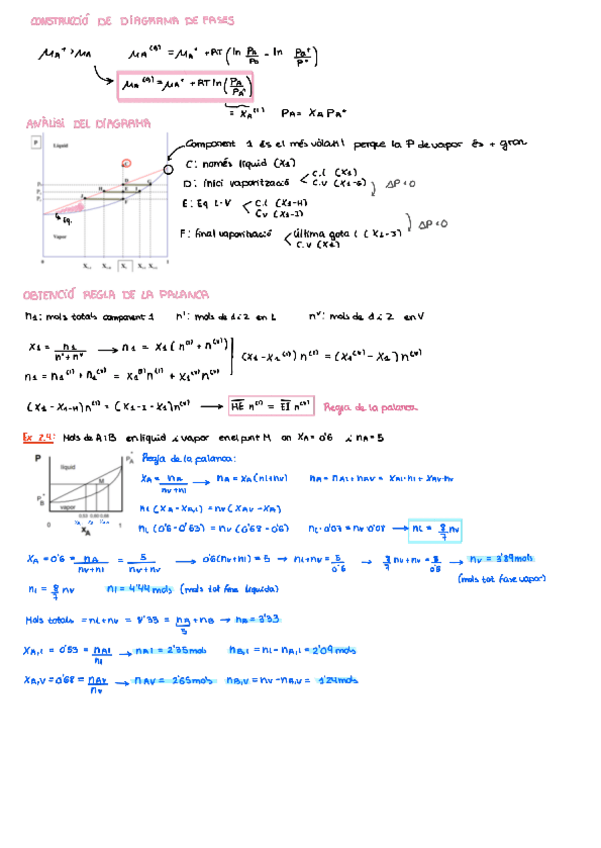 CONSTRUCCIÓ DE DIAGRAMA DE FASES
μA* > μA   μA(g) = μA* + RT (ln PA/P0 - ln PA*/P°)
μA(g) = μA* + RT ln (PA/PA*)
= XA(l)   PA = XA PA*
ANÀLISI DEL DIAGRAMA
Component 1 és el més volàtil perque la P de vapor és + gran
C: només líquid (X1)
D: inici vaporització < C.L (X1) C.V (X1-G) ΔP<0
E: Eq L-V < C.L (X1-H) C.V (X1-I)
F: final vaporització < última gota l (X1-J) C.V (X1) ΔP<0
P
Líquid
Eq.
Vapor
0
1
OBTENCIÓ REGLA DE LA PALANCA
n1: mols totals component 1   nˡ: mols de 1 i 2 en L   nᵛ: mols de 1 i 2 en V
X1 = n1/(nˡ + nᵛ) → n1 = X1 (n(l) + n(v))
(X1 - X1(l)) n(l) = (X1(v) - X1) n(v)
n1 = n1(l) + n1(v) = X1(l) n(l) + X1(v) n(v)
(X1 - X1-H) n(l) = (X1-I - X1) n(v) → HE n(l) = EI n(v)   Regla de la palanca
Ex 2.4: Mols de A i B en líquid i vapor en el punt M on XA = 0'6 i nA = 5
P
PA*
líquid
M
PB*
vapor
0.53 0.60 0.68
0
XA
1
Regla de la palanca:
XA = nA/(nV+nl) → nA = XA (nl+nV)   nA = nAl + nAV = XAl·nl + XAV·nV
nl (XA - XA,l) = nV (XAV - XA)
nl (0'6 - 0'53) = nV (0'68 - 0'6)   nl·0'07 = nV·0'08 → nl = 8/7 nV
XA = 0'6 = nA/(nV+nl) = 5/(nV+nV) → 0'6(nV+nl) = 5 → nl+nV = 5/0'6 → 8/7 nV + nV = 5/0'6 → nV = 3'89 mols
(mols tot fase vapor)
nl = 8/7 nV   nl = 4'44 mols (mols tot fase líquida)
Mols totals = nl+nV = 8'33 = nA/5 + nB → nB = 3'33
XA,l = 0'53 = nAl/nl → nAl = 2'35 mols   nB,l = nl - nA,l = 2'09 mols
XA,V = 0'68 = nAV/nV → nAV = 2'65 mols   nB,V = nV - nA,V = 1'24 mols